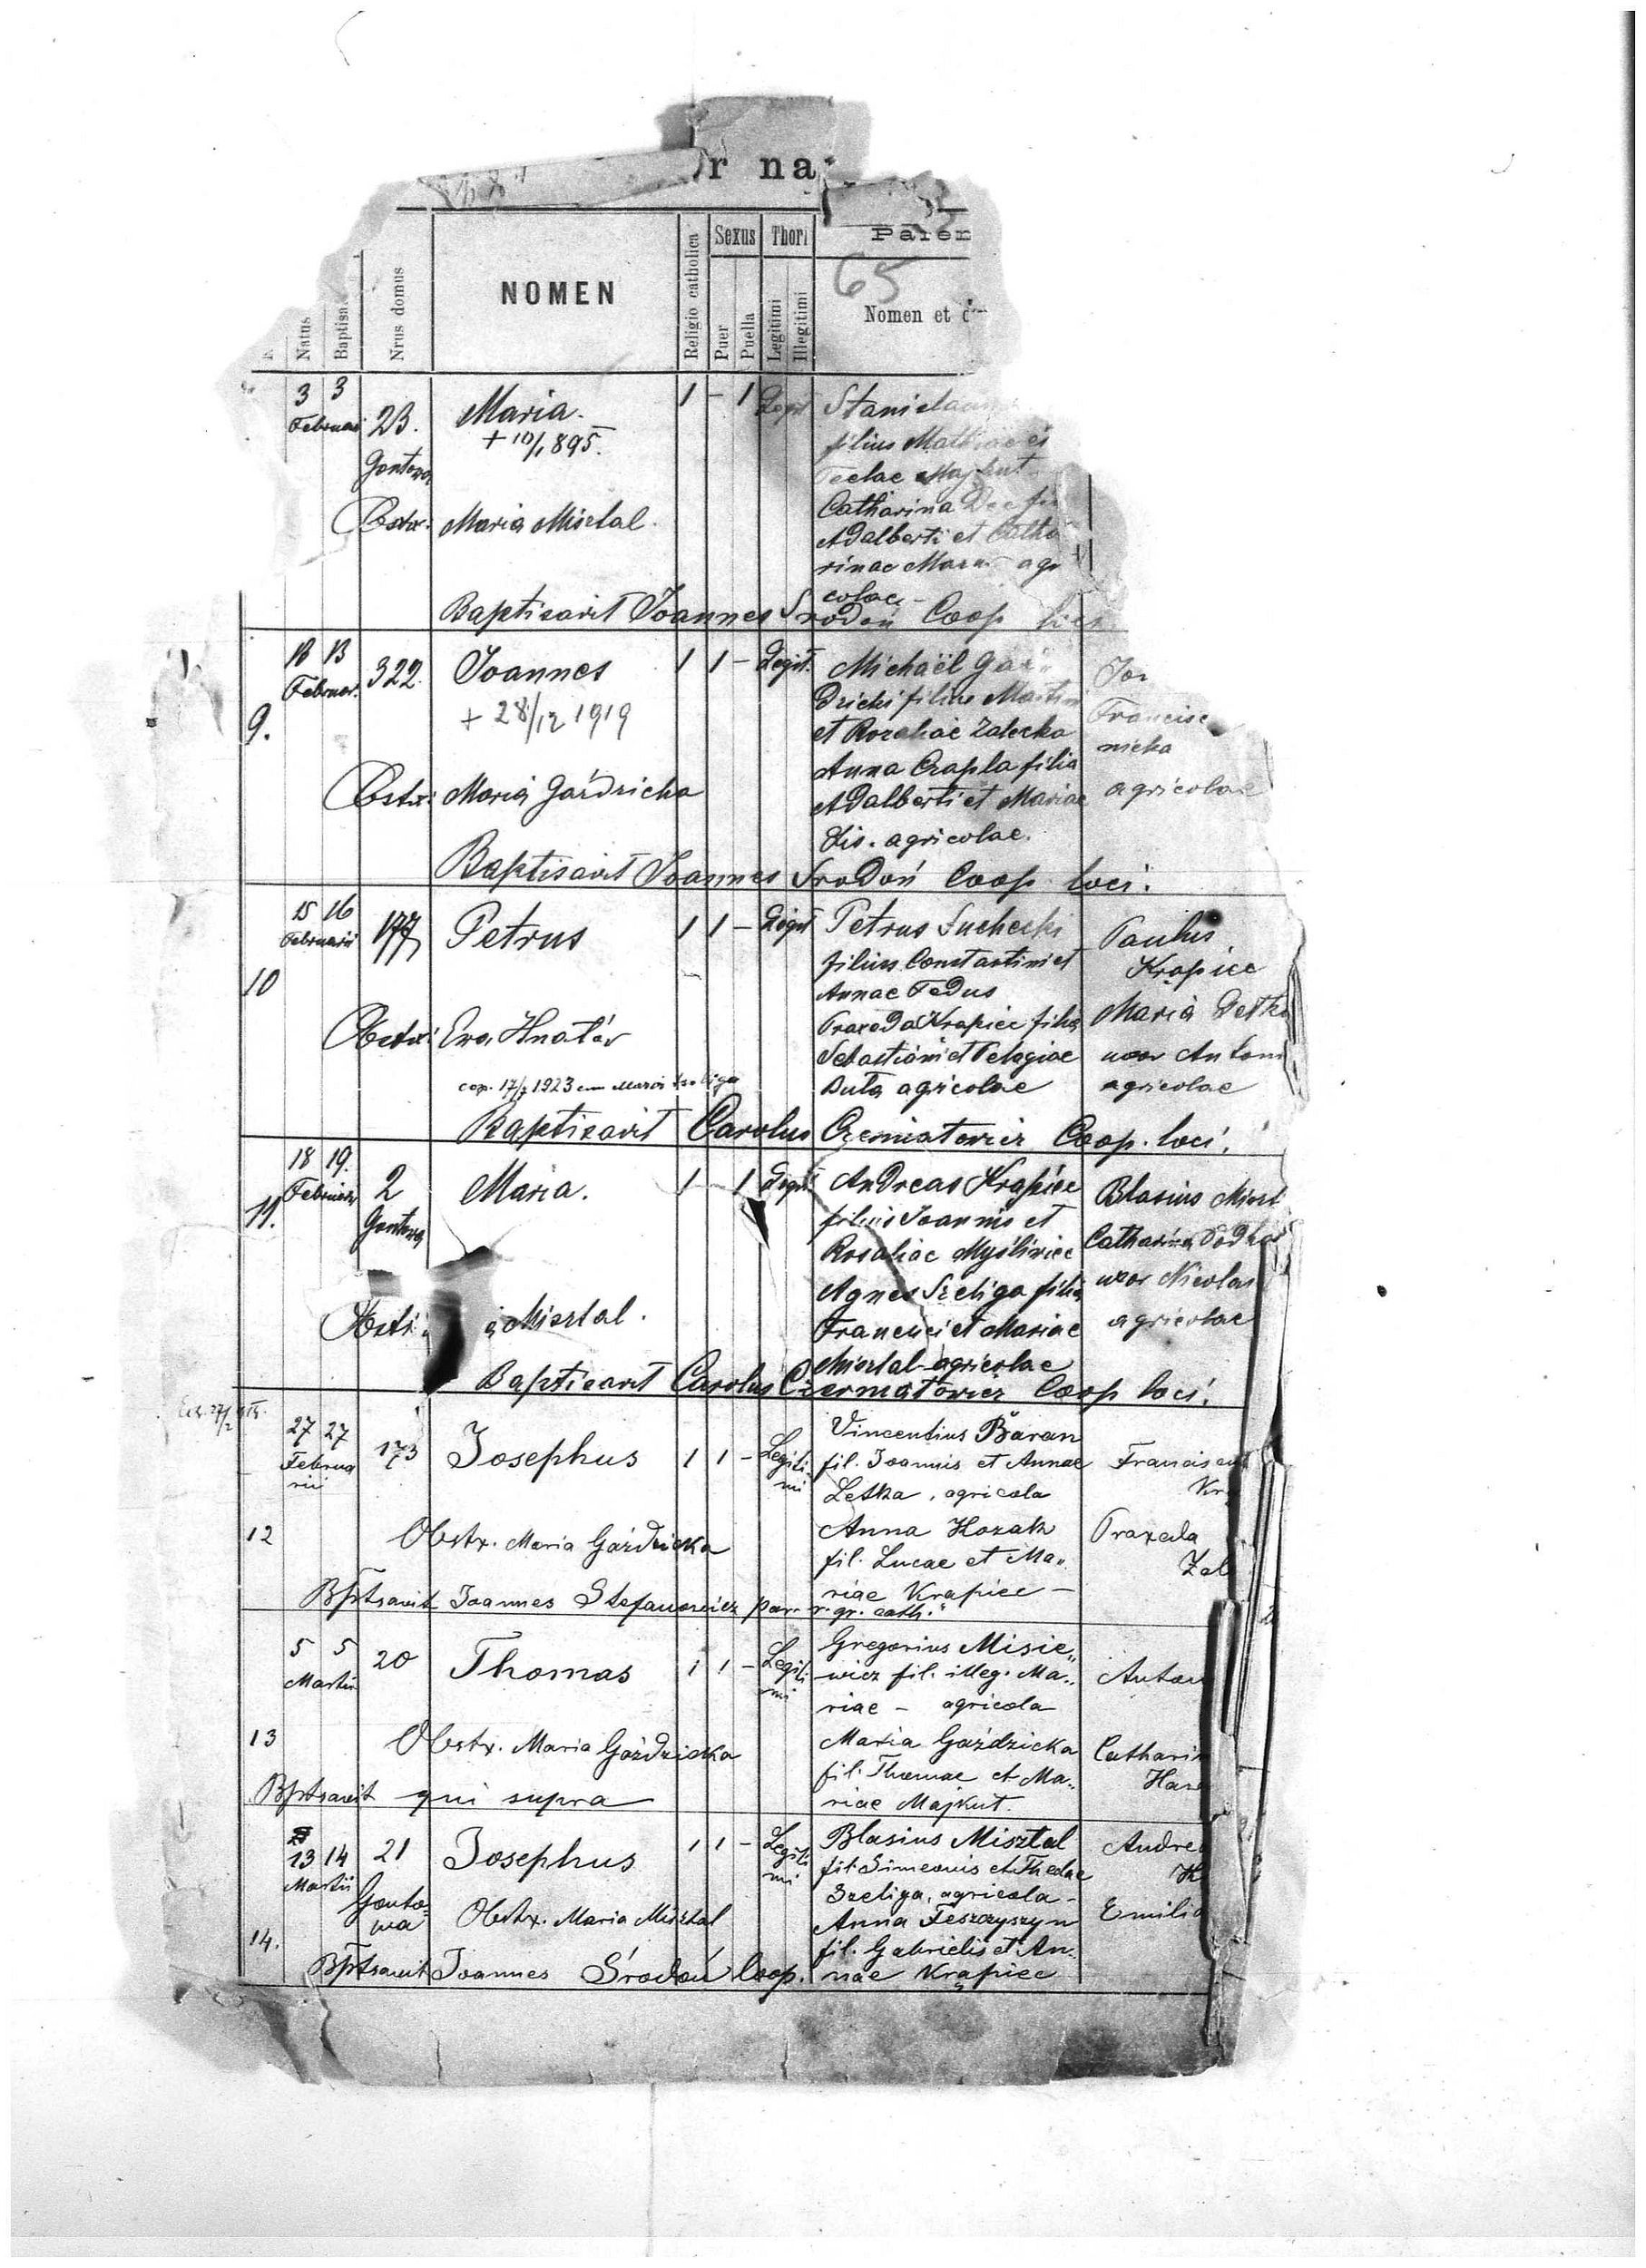 r na
Sexus Thori
Paren
65
NOMEN
Natus
Baptisa
Nrus domus
Religio catholica
Puer
Puella
Legitimi
Illegitimi
Nomen et d
3 3
Februar
23.
Gontowa
Maria.
+ 10/1 895.
1 - 1 Legit
Stanislaus
filius Mathiae et
Teclae Majkut
Catharina Dec fi
Adalberti et Catha
rinae agri
colae -
Obstx. Maria Misztal.
Baptisavit Joannes Srodoń Coop loci
9.
13 13
Februar.
322.
Joannes
+ 28/12 1919
1 1 - Legit.
Michaël Gaź
dzicki filius Martini
et Rozaliae Zalecka
Anna Czapla filia
Adalberti et Mariae
Lis. agricolae.
Francisc
nicka
agricolae
Obstx: Maria Gaździcka
Baptisavit Joannes Srodoń Coop loci.
10
15 16
Februarii
177
Petrus
1 1 - Legit
Petrus Suchecki
filius Constantini et
Annae Fedus
Praxeda Krąpiec filia
Sebastiani et Pelagiae
Duta agricolae
Paulus
Krąpiec
Maria Detk
uxor Antoni
agricolae
Obstx: Eva Hnatów
cop. 17/7 1923 cum Maria Szeliga
Baptisavit Carolus Czermatowicz Coop. loci.
11.
18 19.
Februar
2
Gontowa
Maria.
1 - 1 Legit
Andreas Krąpiec
filius Joannis et
Rosaliae Myśliwiec
Agnes Szeliga filia
Francisci et Mariae
Misztal agricolae
Blasius Miszt
Catharina Podha
uxor Nicolai
agricolae
Obstx: Misztal.
Baptisavit Carolus Czermatowicz Coop loci.
12
27 27
Februa
rii
173
Josephus
1 1 - Legiti-
mi
Vincentius Baran
fil. Joannis et Annae
Letka, agricola
Anna Kozak
fil. Lucae et Ma„
riae Krąpiec -
Franciscus
Kr
Praxeda
Zal
Obstx. Maria Gaździcka
Bptsavit Joannes Stefanowicz par. r. gr. cath.
13
5 5
Martii
20
Thomas
1 1 - Legiti
mi
Gregorius Misie„
wicz fil. illeg. Ma„
riae - agricola
Maria Gaździcka
fil. Thomae et Ma„
riae Majkut.
Anton
Catharin
Har
Obstx. Maria Gaździcka
Bptsavit qui supra
14.
13 14
Martii
21
Gonto=
wa
Josephus
1 1 - Legiti
mi
Blasius Misztal
fil. Simeonis et Theclae
Szeliga, agricola -
Anna Feszczyszyn
fil. Gabrielis et An„
nae Krąpiec
Andre
Emilia
Obstx. Maria Misztal
Bptsavit Joannes Środoń Coop.